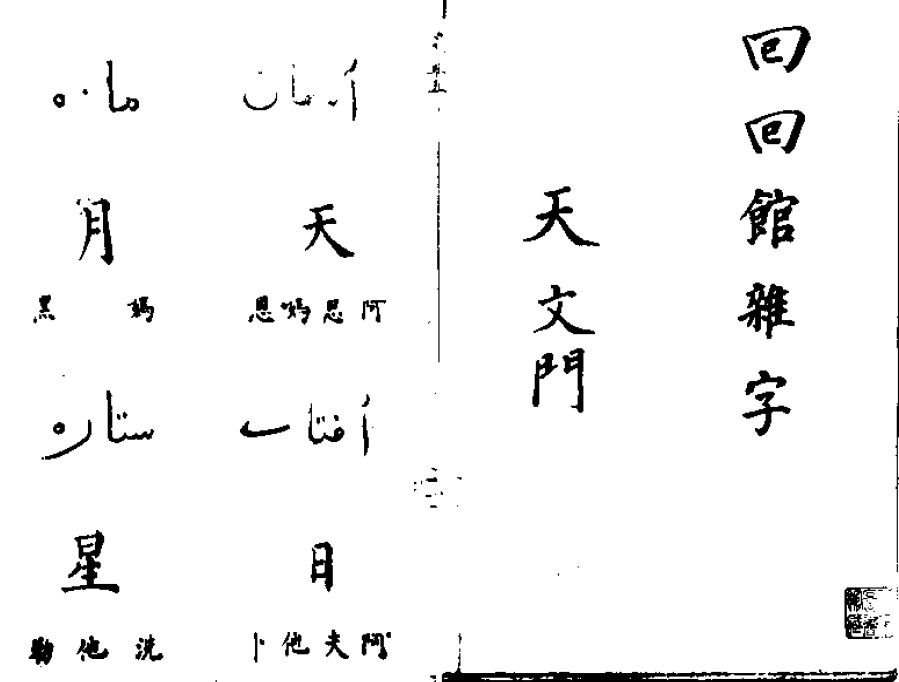 回回館雜字
天文門
آسمان
天
阿思媽恩
آفتاب
日
阿夫他卜
ماه
月
媽黑
ستاره
星
洗他勒